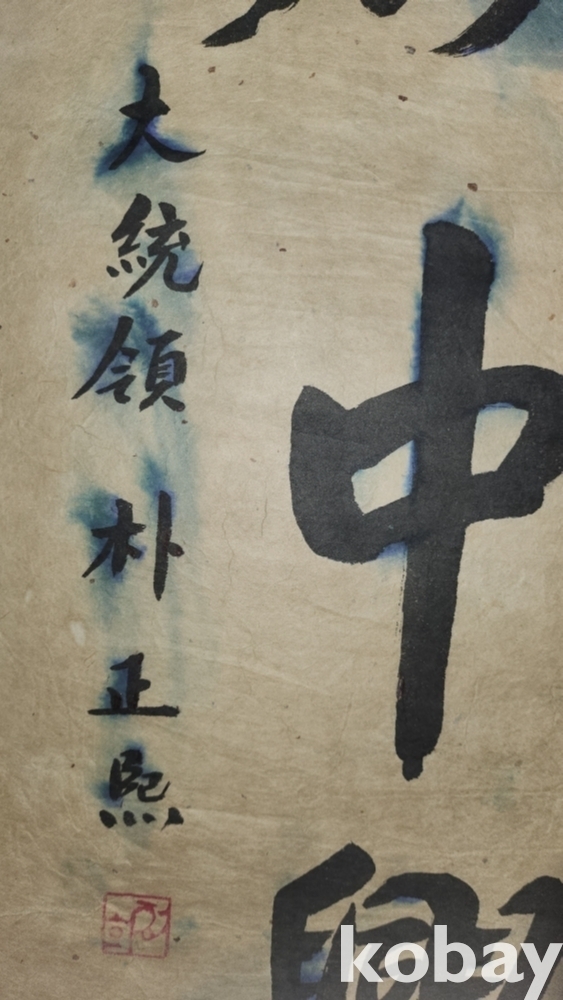 中興
大統領 朴正熙
kobay